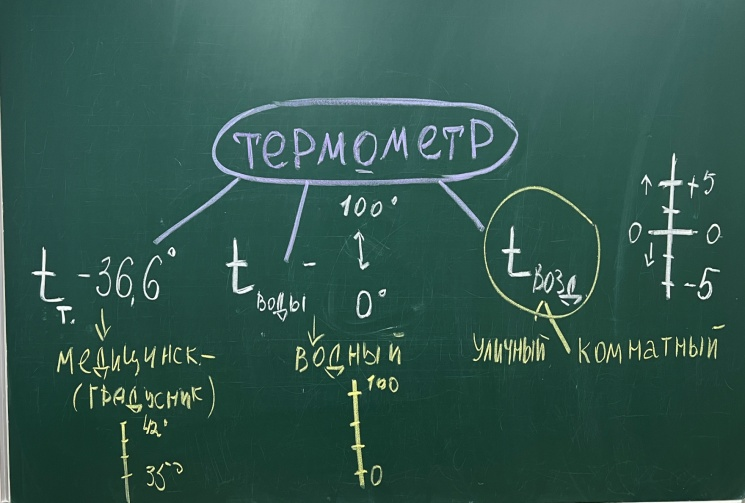 термометр
t т. - 36,6°
медицинск-
(градусник)
42°
35°
t воды -
100°
0°
водный
100
0
t возд
уличный комнатный
+5
0 0
-5